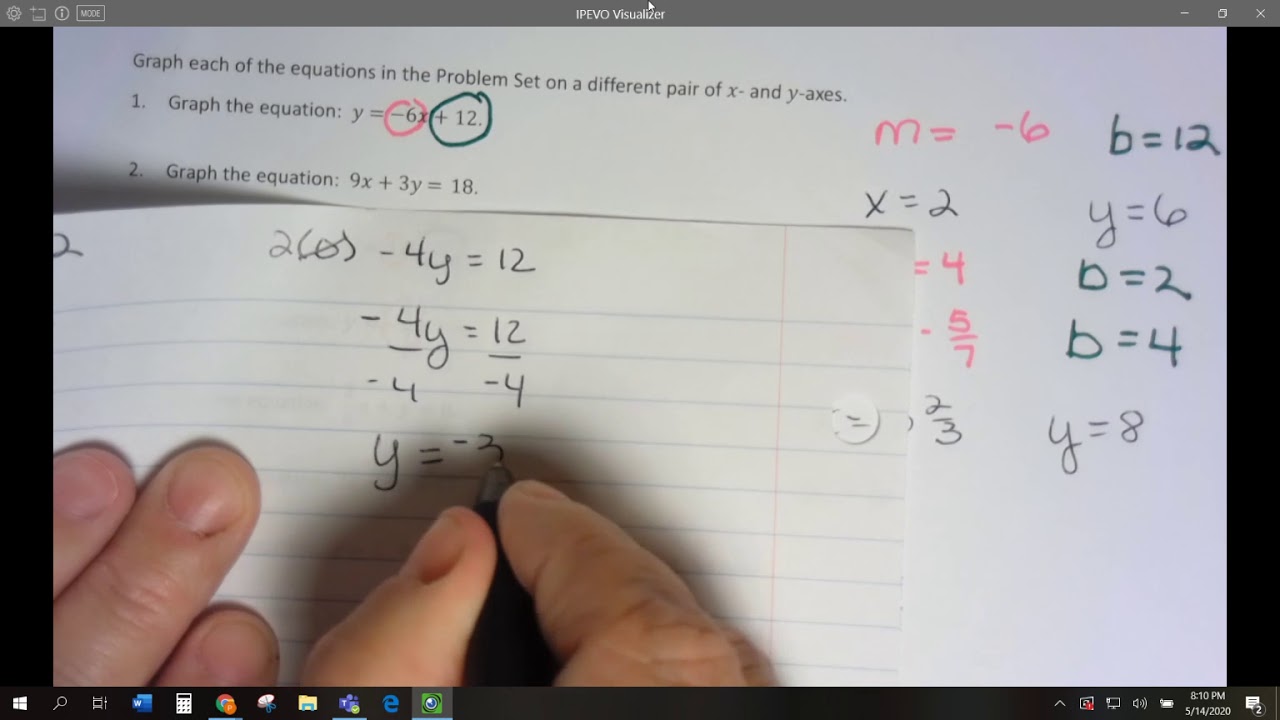 MODE
IPEVO Visualizer
Graph each of the equations in the Problem Set on a different pair of x- and y-axes.
1. Graph the equation: y = −6x + 12.
2. Graph the equation: 9x + 3y = 18.
m = -6
b = 12
x = 2
y = 6
= 4
b = 2
- 5/7
b = 4
= , 2/3
y = 8
2
2(0) - 4y = 12
- 4y = 12
-4 -4
y = -3
8:10 PM
5/14/2020
2